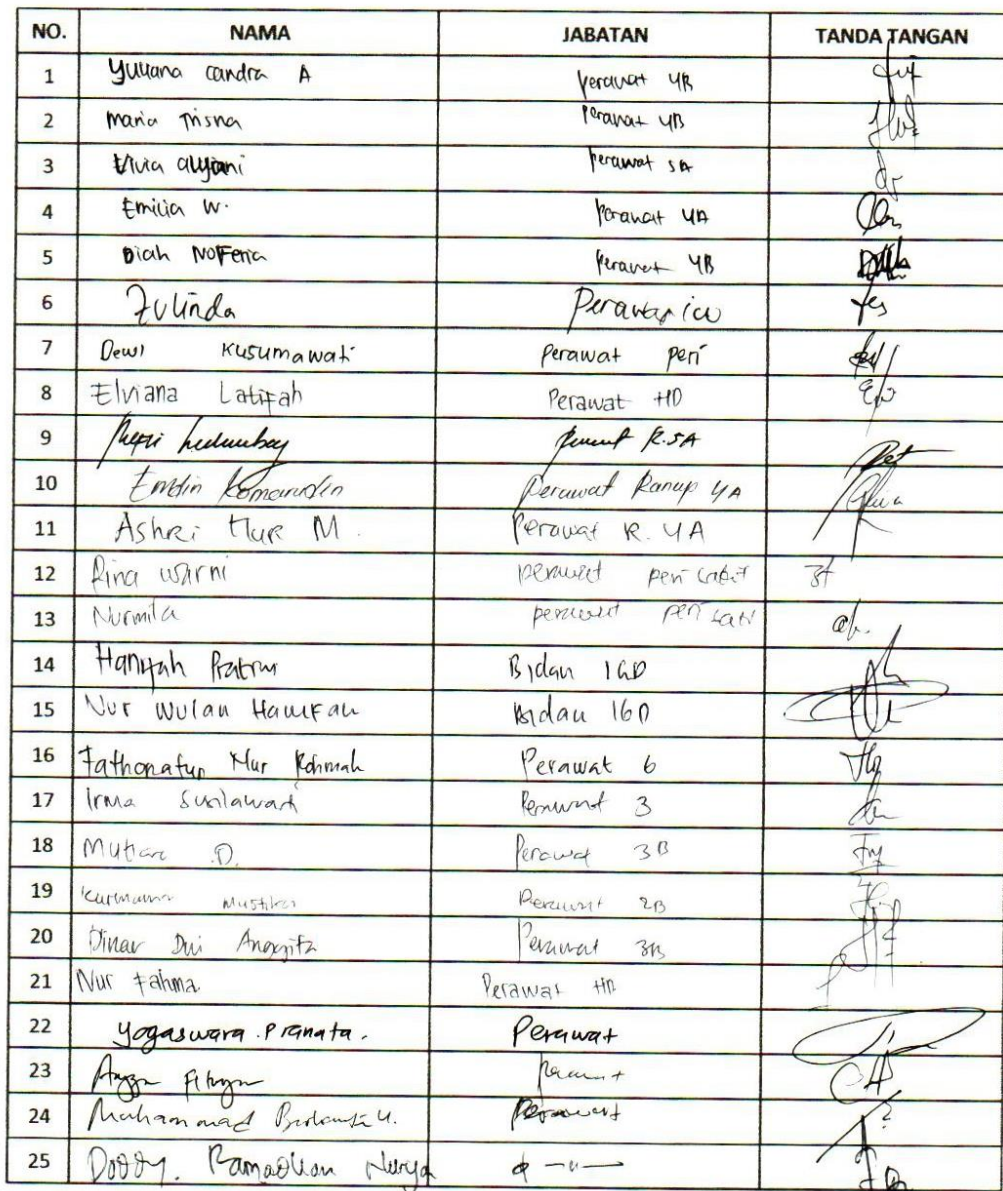 NO. NAMA JABATAN TANDA TANGAN
1 Yuliana candra A Perawat 4B
2 Maria Trisna Perawat 4B
3 Alyiani Perawat 5A
4 Emilia W. Perawat 4A
5 Diah Noferia Perawat 4B
6 Zulinda Perawat icu
7 Dewi Kusumawati Perawat peri
8 Elviana Latifah Perawat HD
9 R.5A
10 Emdin Komarudin Perawat Ranap 4A
11 Ashri Nur M. Perawat R. 4A
12 Rina warni perawat peri
13 Nurmila perawat peri
14 Haniyah Bidan IGD
15 Nur Wulan Hanifah Bidan IGD
16 Fathonatun Nur Rohmah Perawat 6
17 Irma Susilawati Perawat 3
18 Mutiara D. Perawat 3B
19 Mustika Perawat 2B
20 Dinar Dwi Anggita Perawat 3B
21 Nur Fahma Perawat HD
22 Yogaswara Pranata. Perawat
23 Angga Perawat
24 Muhammad Perawat
25 Doddy. Ramadhan